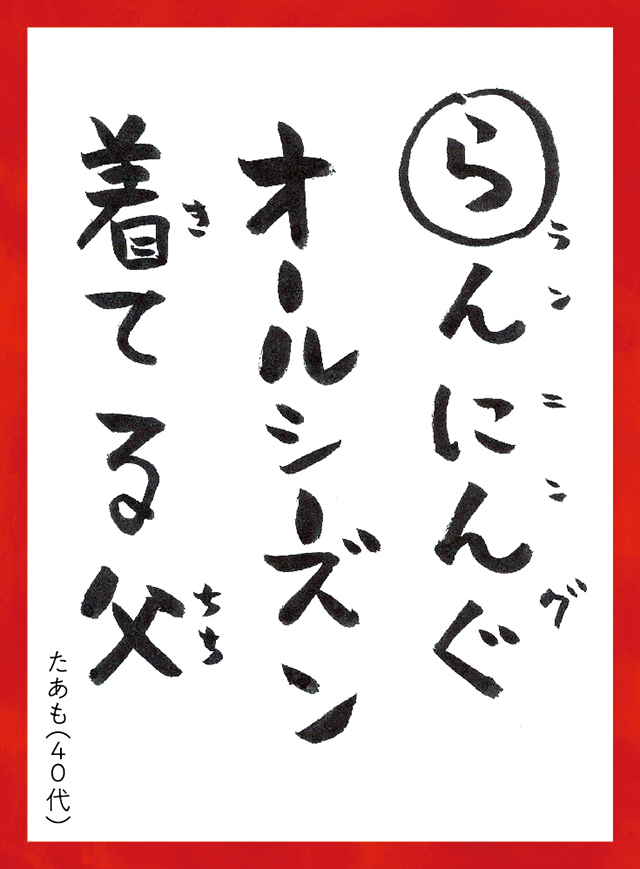 らんにんぐ
ランニング
オールシーズン
着てる父
き
ちち
たあも(40代)